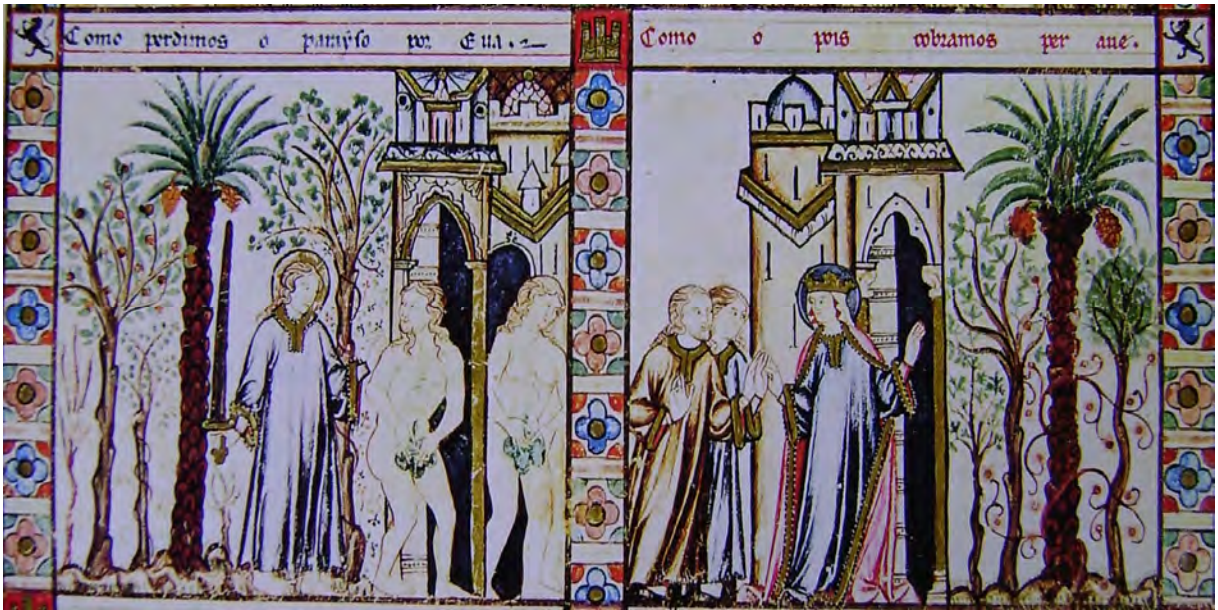 Como perdimos o parayso por Eua.
Como o pois cobramos per aue.